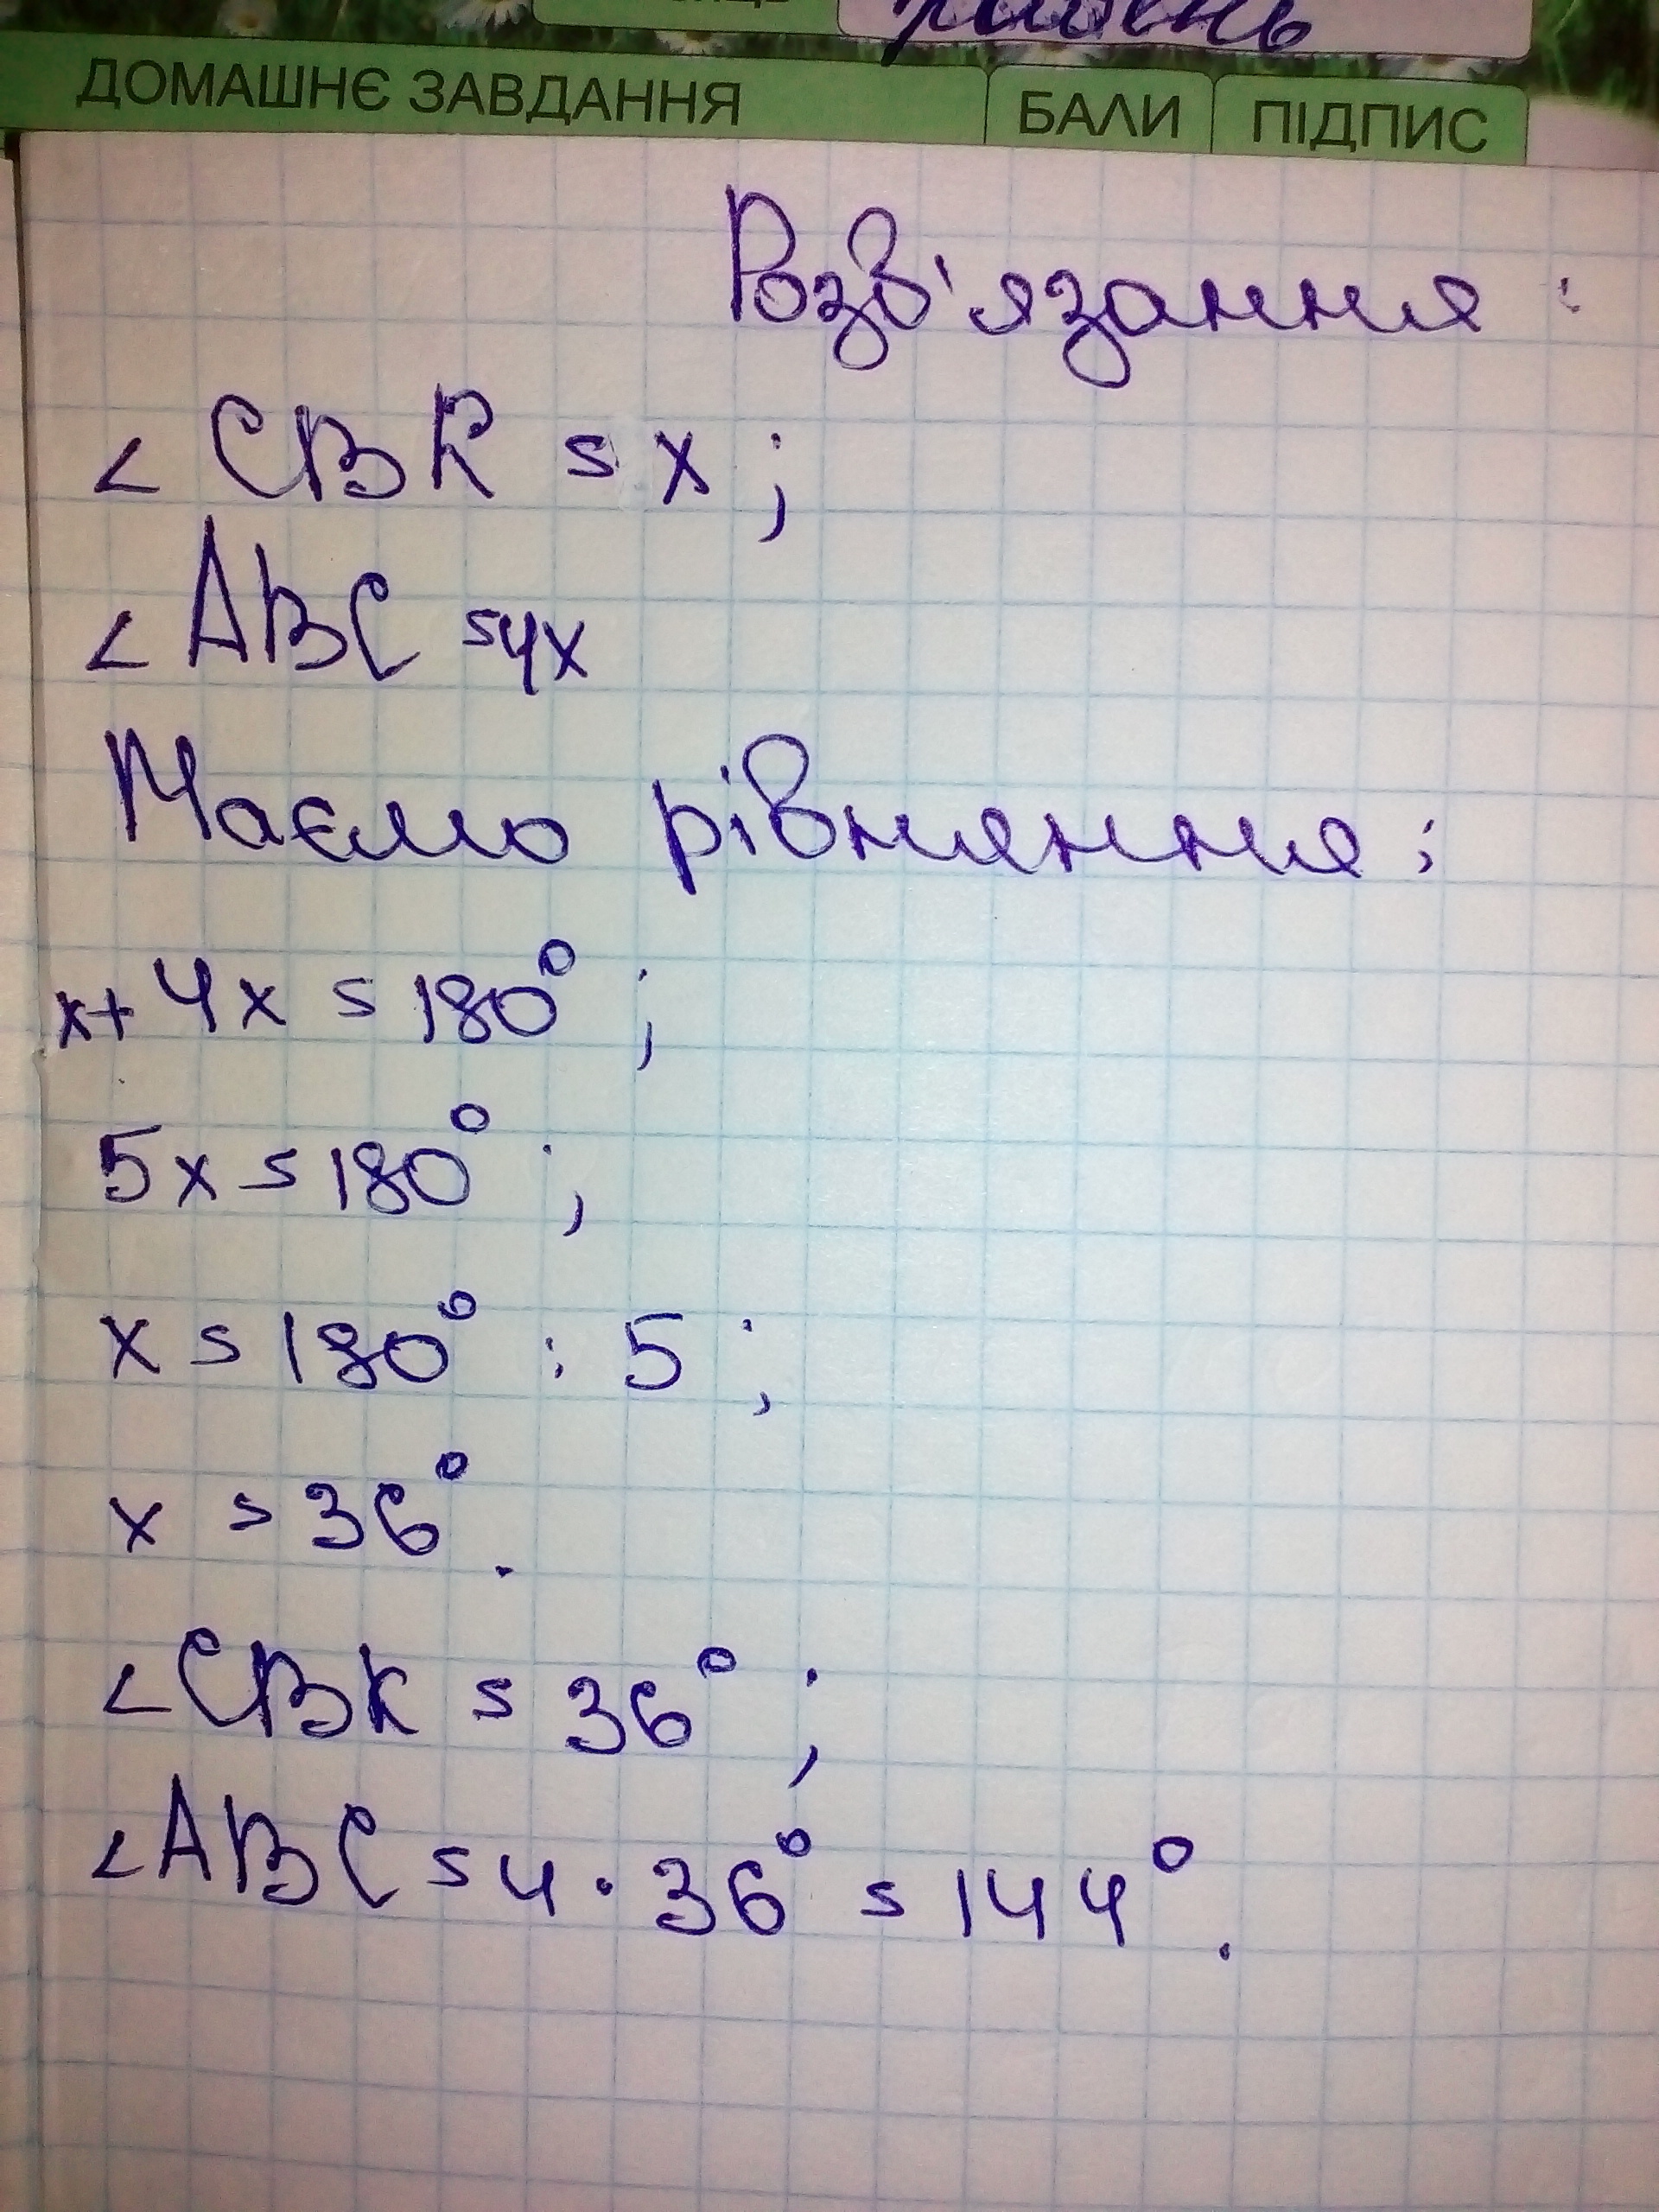 ДОМАШНЄ ЗАВДАННЯ БАЛИ ПІДПИС
Розв'язання:
∠CBK = x;
∠ABC = 4x
Маємо рівняння:
x + 4x = 180°;
5x = 180°;
x = 180° : 5;
x = 36°.
∠CBK = 36°;
∠ABC = 4 · 36° = 144°.